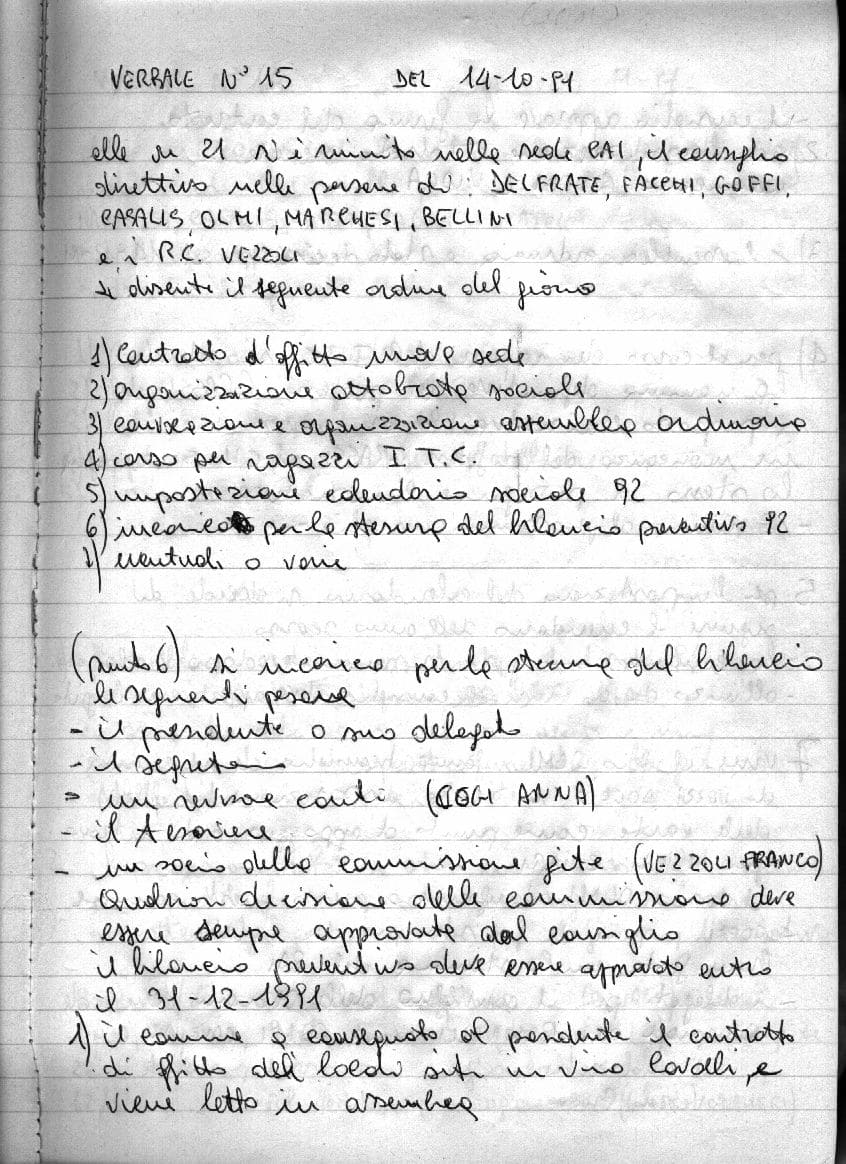 VERBALE N° 15 DEL 14-10-91
alle ore 21 si è riunito nella sede CAI, il consiglio
direttivo nelle persone di: DELFRATE, FACCHI, GOFFI,
CASALIS, OLMI, MARCHESI, BELLINI
e i R.C. VEZZOLI
si discute il seguente ordine del giorno
1) Contratto d'affitto nuova sede
2) organizzazione ottobrata sociale
3) convocazione e organizzazione assemblea ordinaria
4) corso per ragazzi I.T.C.
5) impostazione calendario sociale 92
6) incarico per la stesura del bilancio preventivo 92
7) eventuali o varie
(punto 6) si incarica per la stesura del bilancio
le seguenti persone
- il presidente o suo delegato
- il segretario
- un revisore conti (COGI ANNA)
- il tesoriere
- un socio della commissione gite (VEZZOLI FRANCO)
Qualsiasi decisione della commissione deve
essere sempre approvata dal consiglio
il bilancio preventivo deve essere approvato entro
il 31-12-1991
1) il comune a consegnato al presidente il contratto
di affitto dei locali siti in vico Cavalli, e
viene letto in assemblea